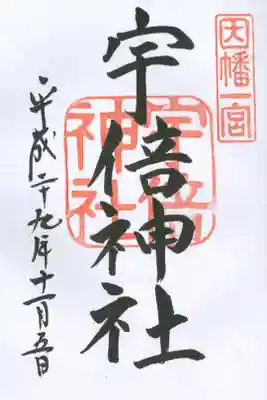 因幡一宮
宇倍神社
宇倍
神社
平成二十九年十一月五日